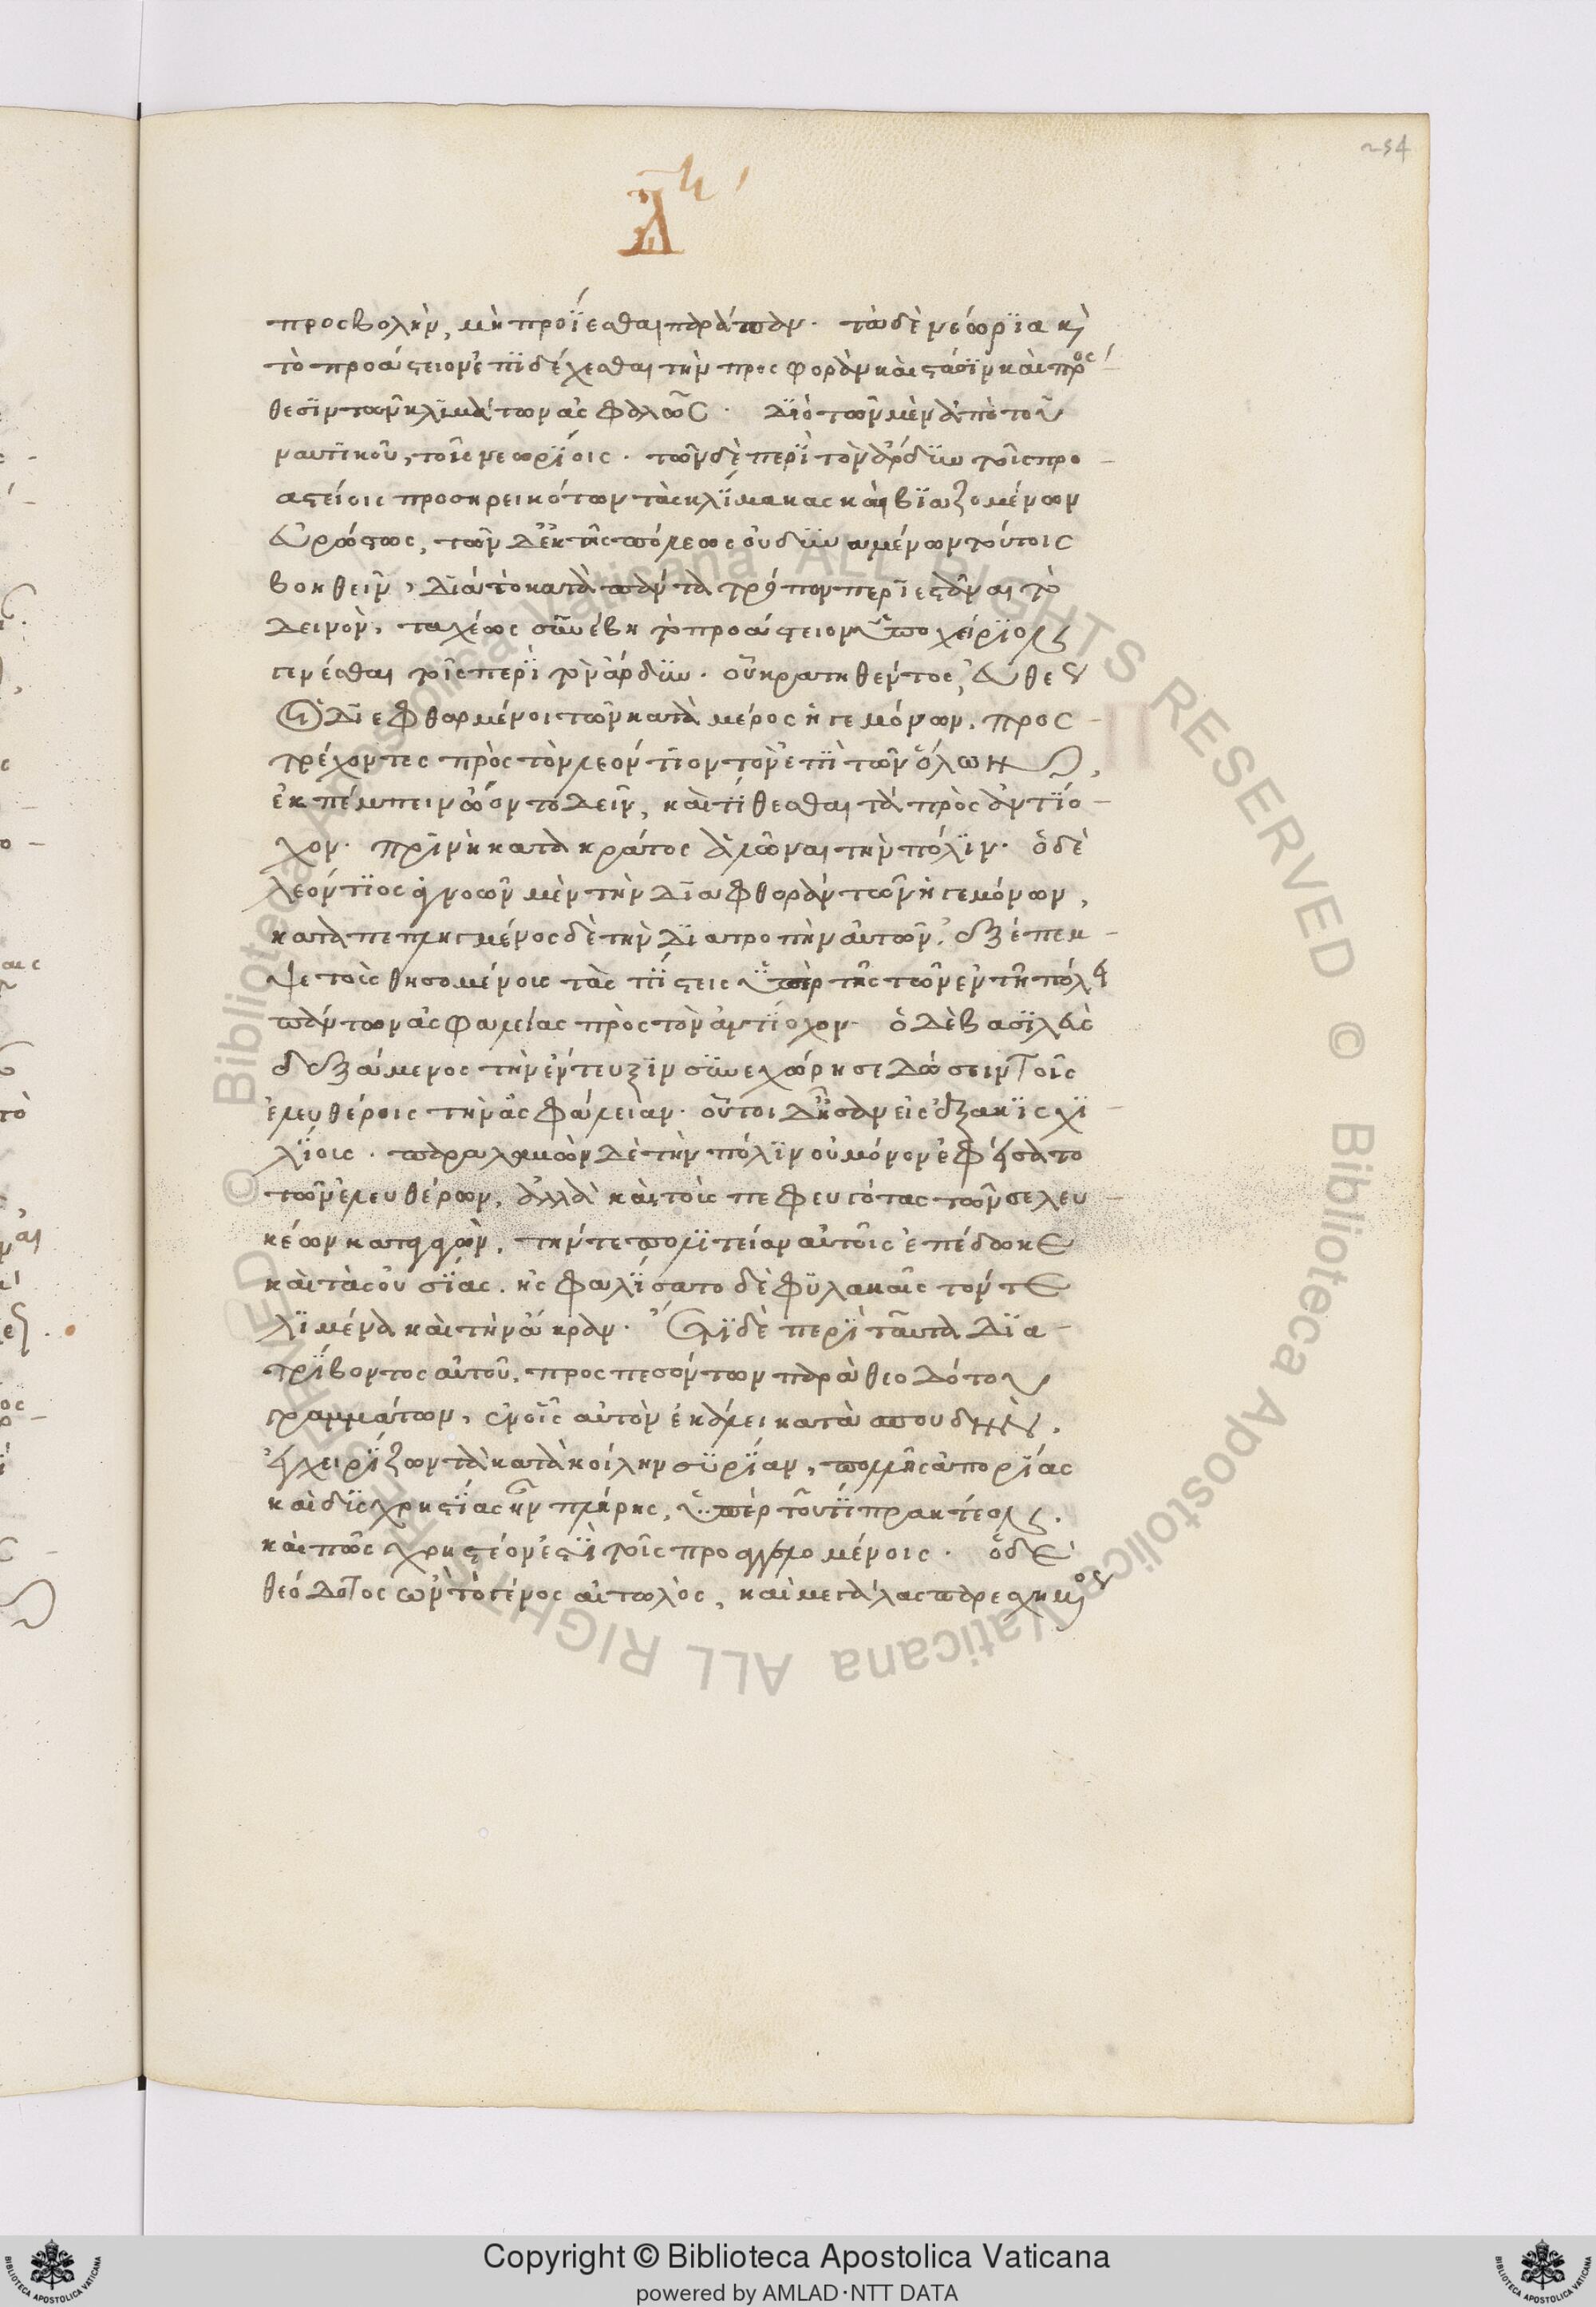 προσβολὴν, μὴ προΐεσθαι παράπαν. τὰ δὲ νεώρϊα κ(αὶ)
τὸ προάστειον ἐπϊδέχεσθαι τὴν προσφορὰν καὶ στάσϊν καὶ πρόσ-
θεσϊν τῶν κλϊμάτων ἀσφαλῶς. Δϊὸ τῶν μὲν ἀπὸ τοῦ
ναυτϊκοῦ, τοῖς νεωρϊοις. τῶν δὲ περϊ τὸν ἄρδϋν τοῖς προ-
αστείοις προσηρεικότων τὰς κλϊμακας καὶ βϊαζομένων
εὐρώστως, τῶν δ' ἐκ τῆς πόλεως οὐ δϋναμένων τούτοις
βοηθεῖν, Διὰ τὸ κατὰ πάντα τρόπον περϊεστάναι τὸ
Δεινὸν, ταχέως σϋνέβη τὸ προάστειον ὑποχείρϊον
γενέσθαι τοῖς περϊ τὸν ἄρδϋν. οὗ κρατηθέντος, εὐθέως
οἱ Διεφθαρμένοι τῶν κατὰ μέρος ἡγεμόνων. προσ-
τρέχοντες πρὸς τὸν λεόντϊον τὸν ἐπϊ τῶν ὅλων,
ἐκπέμπειν ὤοντο Δεῖν, καὶ τϊθεσθαι τὰ πρὸς ἀντϊο-
χον. πρϊν ἢ κατὰ κράτος ἁλῶναι τὴν πόλϊν. ὁ δὲ
λεόντϊος ἀγνοῶν μὲν τὴν Διαφθορὰν τῶν ἡγεμόνων,
καταπεπληγμένος δὲ τὴν Διατροπὴν αὐτῶν, ἐξέπεμ-
ψε τοὺς θησομένους τὰς πϊστεις ὑπὲρ τῆς τῶν ἐν τῇ πόλει
πάντων ἀσφαλείας πρὸς τὸν ἀντϊοχον. ὁ Δὲ βασϊλεὺς
δεξάμενος τὴν ἔντευξϊν σϋνεχώρησε Δώσειν τοῖς
ἐλευθέροις τὴν ἀσφάλειαν. οὗτοι Δ' ἦσαν εἰς ἑξακϊσχϊ-
λϊους. παραλαβὼν Δὲ τὴν πόλϊν οὐ μόνον ἐφείσατο
τῶν ἐλευθέρων, ἀλλὰ καὶ τοὺς πεφευγότας τῶν σελευ-
κέων καταγαγὼν, τήν τε πολϊτείαν αὐτοῖς ἐπέδωκε
καὶ τὰς οὐσϊας. ἠσφαλϊσατο δὲ φϋλακαῖς τόν τε
λϊμένα καὶ τὴν ἄκραν. Ἔτϊ δὲ περϊ ταῦτα Δϊα-
τρϊβοντος αὐτοῦ, προσπεσόντων παρὰ θεοΔότου
γραμμάτων, ἐν οἷς αὐτὸν ἐκάλει κατὰ σπουδὴν,
ἐγχειρϊζων τὰ κατὰ κοίλην σϋρϊαν, πολλῆς ἀπορϊας
καὶ δϋσχρηστϊας ἦν πλήρης, ὑπὲρ τοῦ τϊ πρακτέον.
καὶ πῶς χρηστέον ἐστϊ τοῖς προσαγγελλομένοις. ὁ δὲ
θεόΔοτος ὢν τὸ γένος αἰτωλὸς, καὶ μεγάλας παρεσχημένος